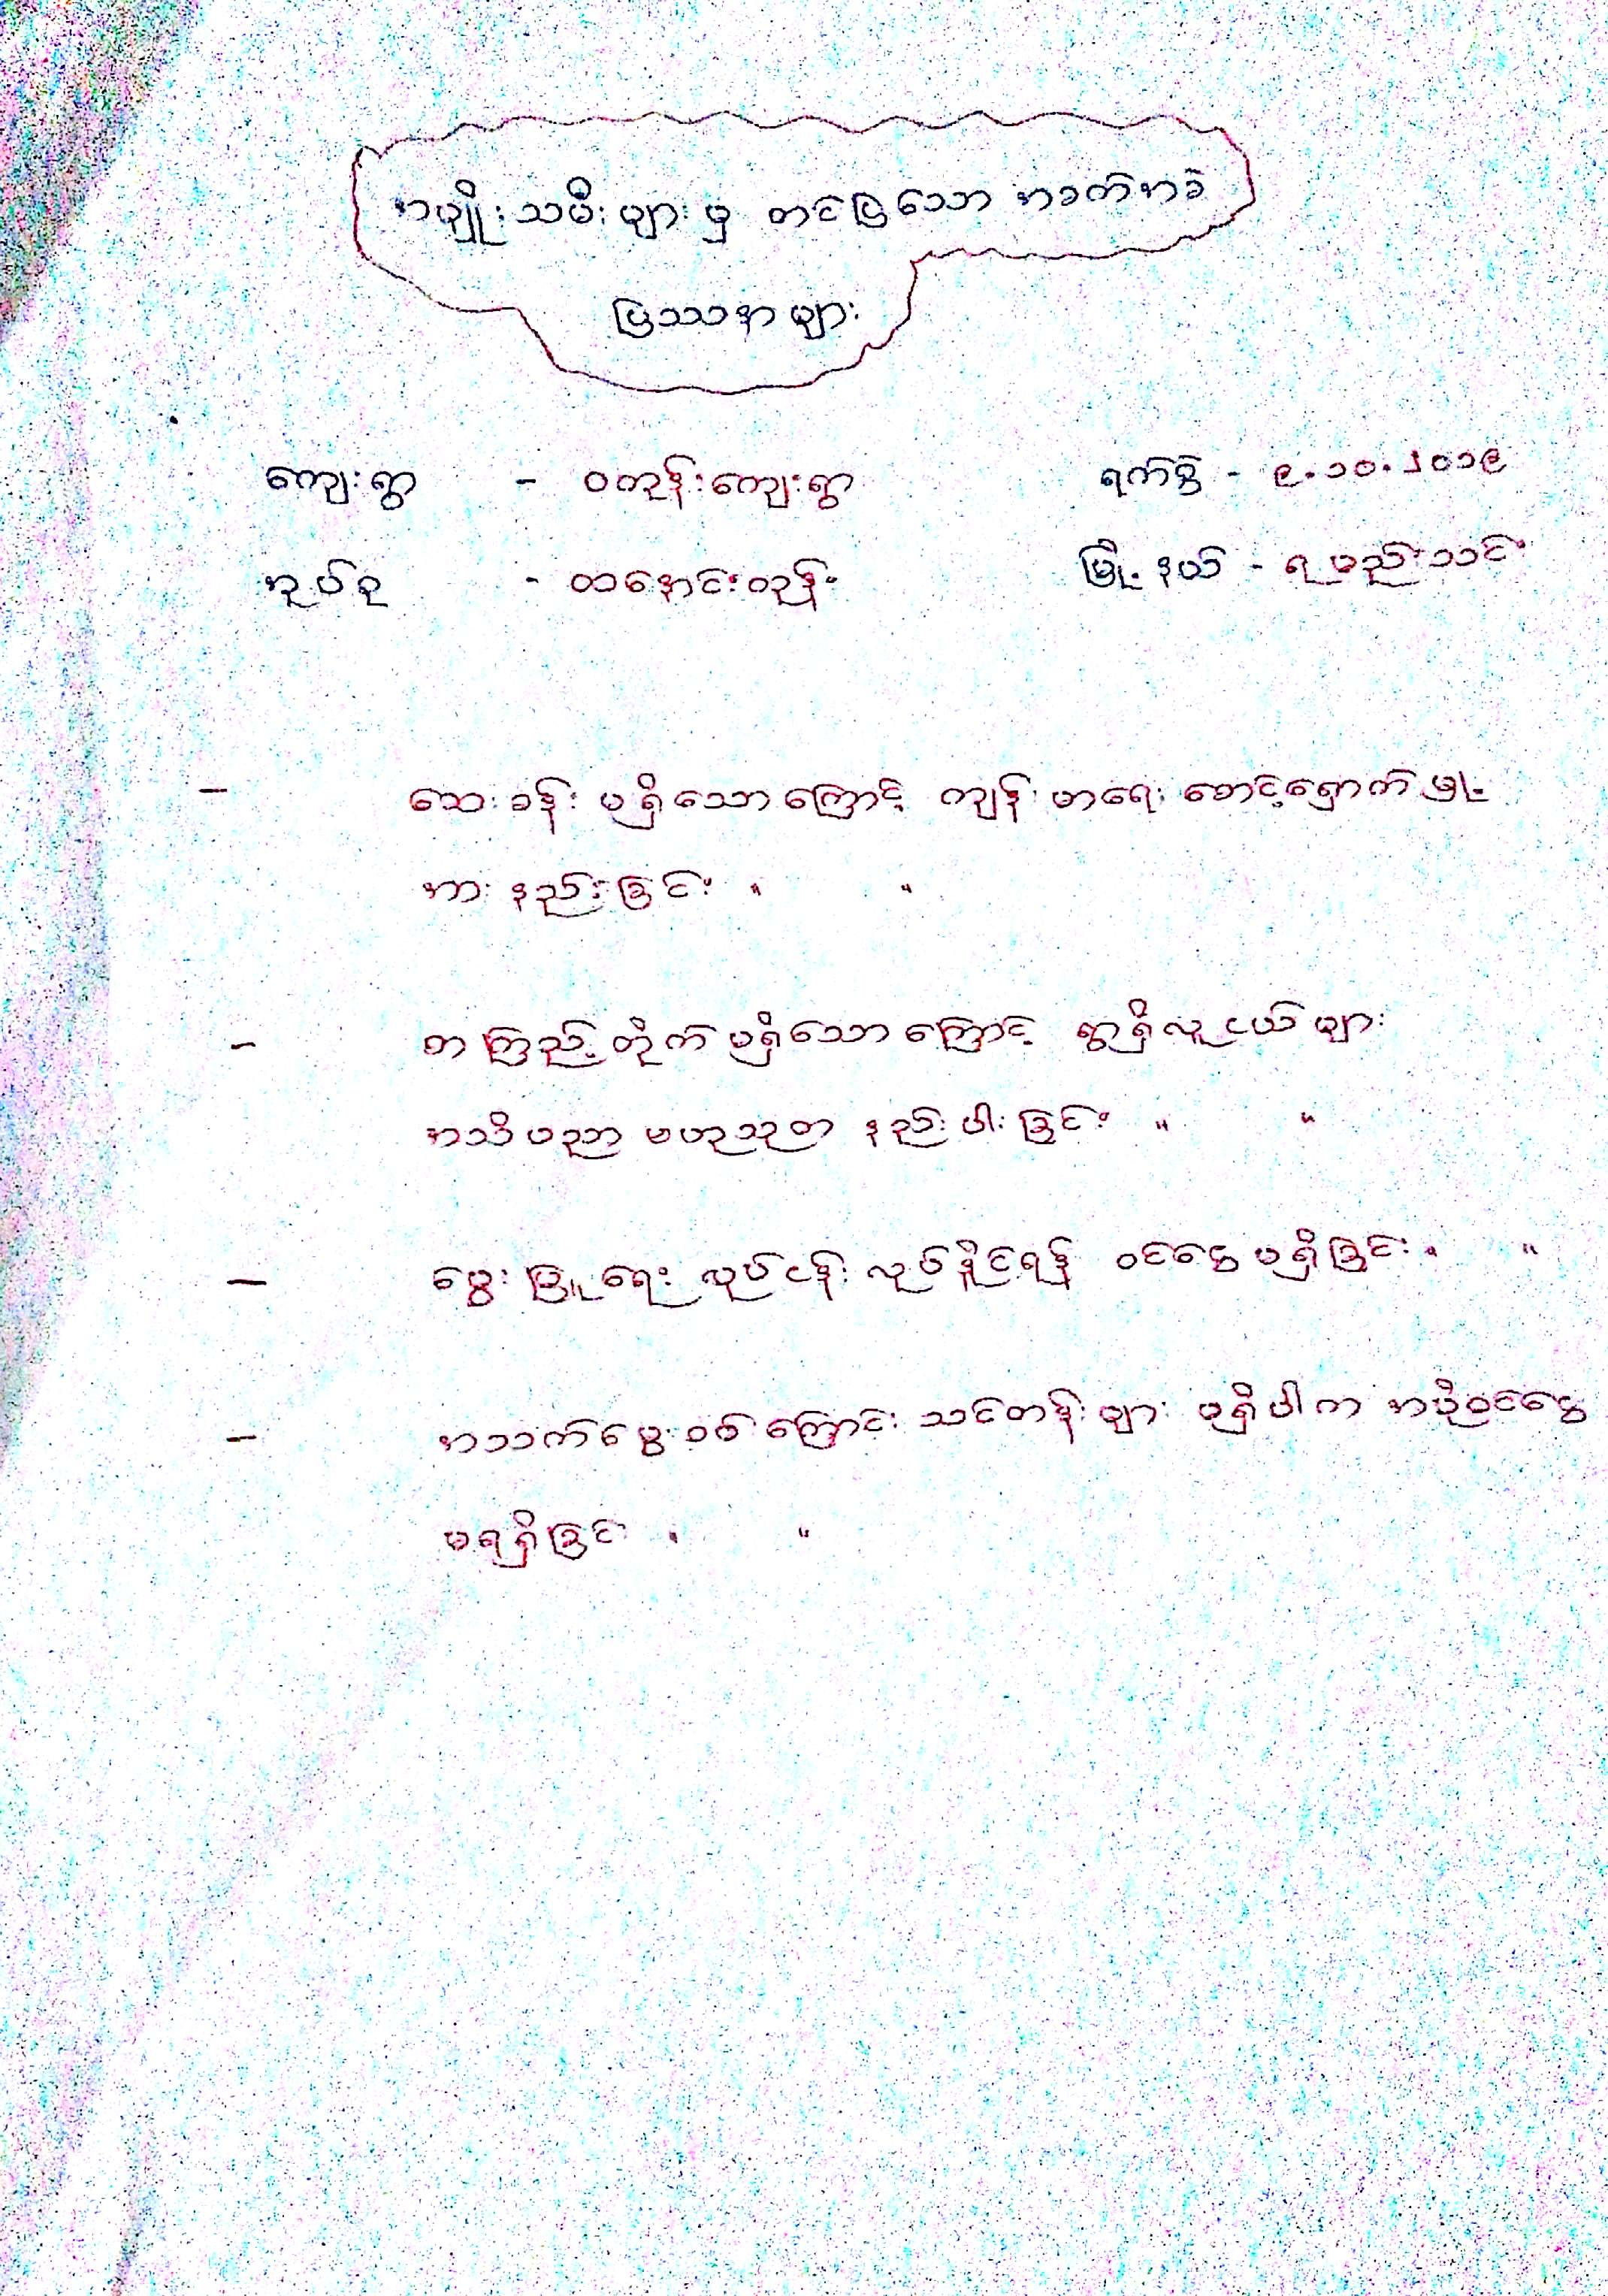 အမျိုးသမီးများမှ တင်ပြသော အခက်အခဲ
ပြဿနာများ
ကျေးရွာ - ဝကုန်းကျေးရွာ ရက်စွဲ - ၉.၁၀.၂၀၁၉
အုပ်စု - တနောင်းကုန်း မြို့နယ် - ရမည်းသင်း
- ဆေးခန်းမရှိသောကြောင့် ကျန်းမာရေးစောင့်ရှောက်မှု့
အားနည်းခြင်း ။ ။
- စာကြည့်တိုက်မရှိသောကြောင့် ရွာရှိလူငယ်များ
အသိပညာ ဗဟုသုတ နည်းပါးခြင်း ။ ။
- မွေးမြူရေး လုပ်ငန်းလုပ်နိုင်ရန် ဝင်ငွေမရှိခြင်း ။ ။
- အသက်မွေးဝမ်းကြောင်း သင်တန်းများ မရှိပါက အပိုဝင်ငွေ
မရရှိခြင်း ။ ။